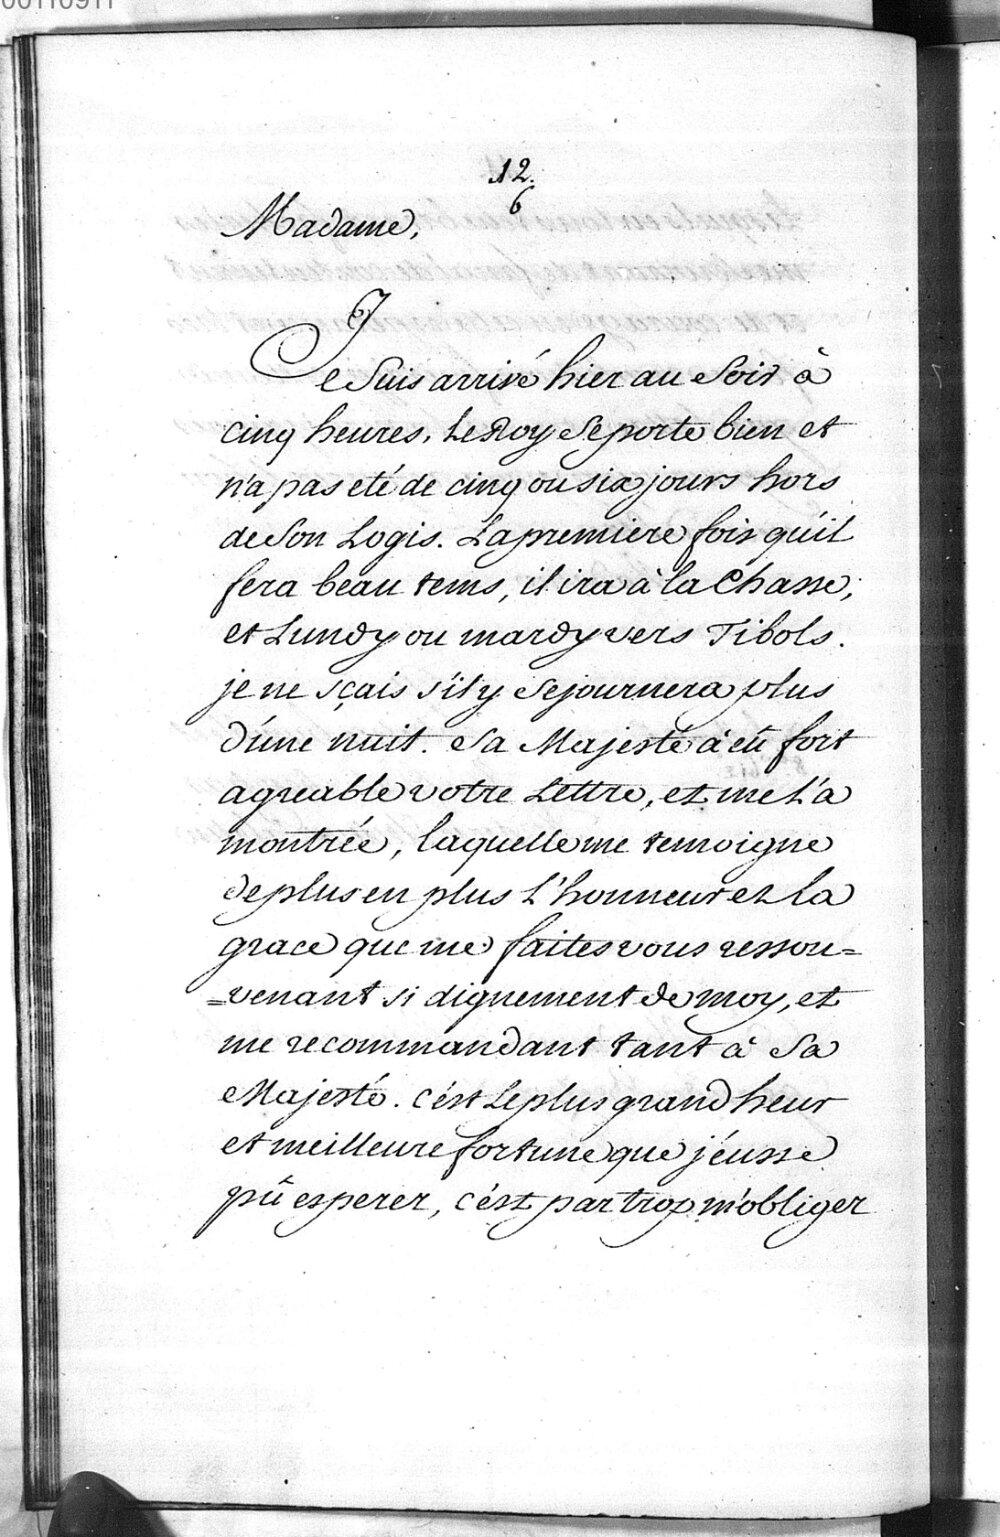 00110911
12.
6
Madame,
Je Suis arrivé hier au Soir à
cinq heures, Le Roy Se porte bien et
n'a pas eté de cinq ou six jours hors
de Son Logis. La premiere fois qu'il
fera beau tems, il ira à la Chasse,
et Lundy ou mardy vers Tibols.
je ne sçais s'il y Sejournera plus
d'une nuit. Sa Majesté à eü fort
agreable votre Lettre, et me L'a
montrée, laquelle me temoigne
de plus en plus L'honneur et la
grace que me faites vous ressou=
=venant si dignement de moy, et
me recommandant tant à Sa
Majesté. c'est Le plus grand heur
et meilleure fortune que j'eusse
pû esperer, c'est par trop m'obliger